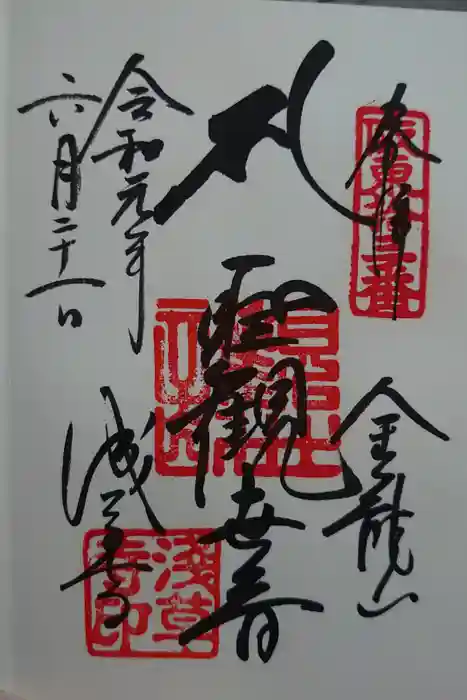 奉拝
坂東拾三番
金龍山
聖観世音
浅草寺
浅草寺印
令和元年
六月二十一日